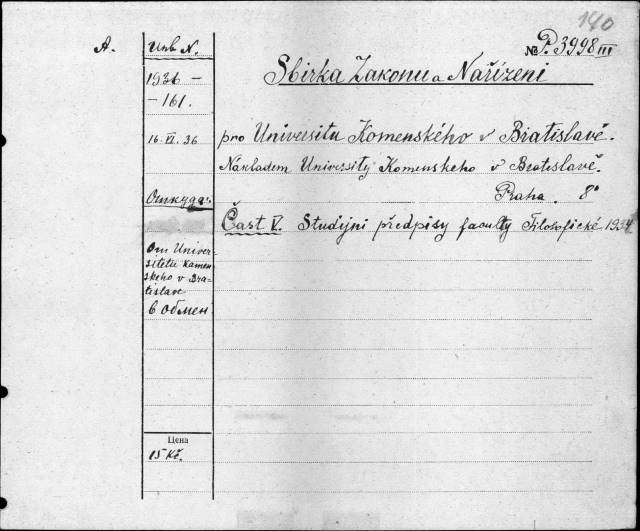 140
A.
Инв N.
№ P. 3998 III
1936 –
– 161.
Sbirka Zakonu a Nařízeni
16. VI. 36
pro Universitu Komenského v Bratislavě.
Nakladem University Komenskeho v Bratislavě.
Praha. 8°
Откуда:
Čast V. Studijni předpisy faculty Filosofické 1934
От Univer-
sitetu Komen-
skeho v Bra-
tislave
в обмен
Цена
15 Kč.